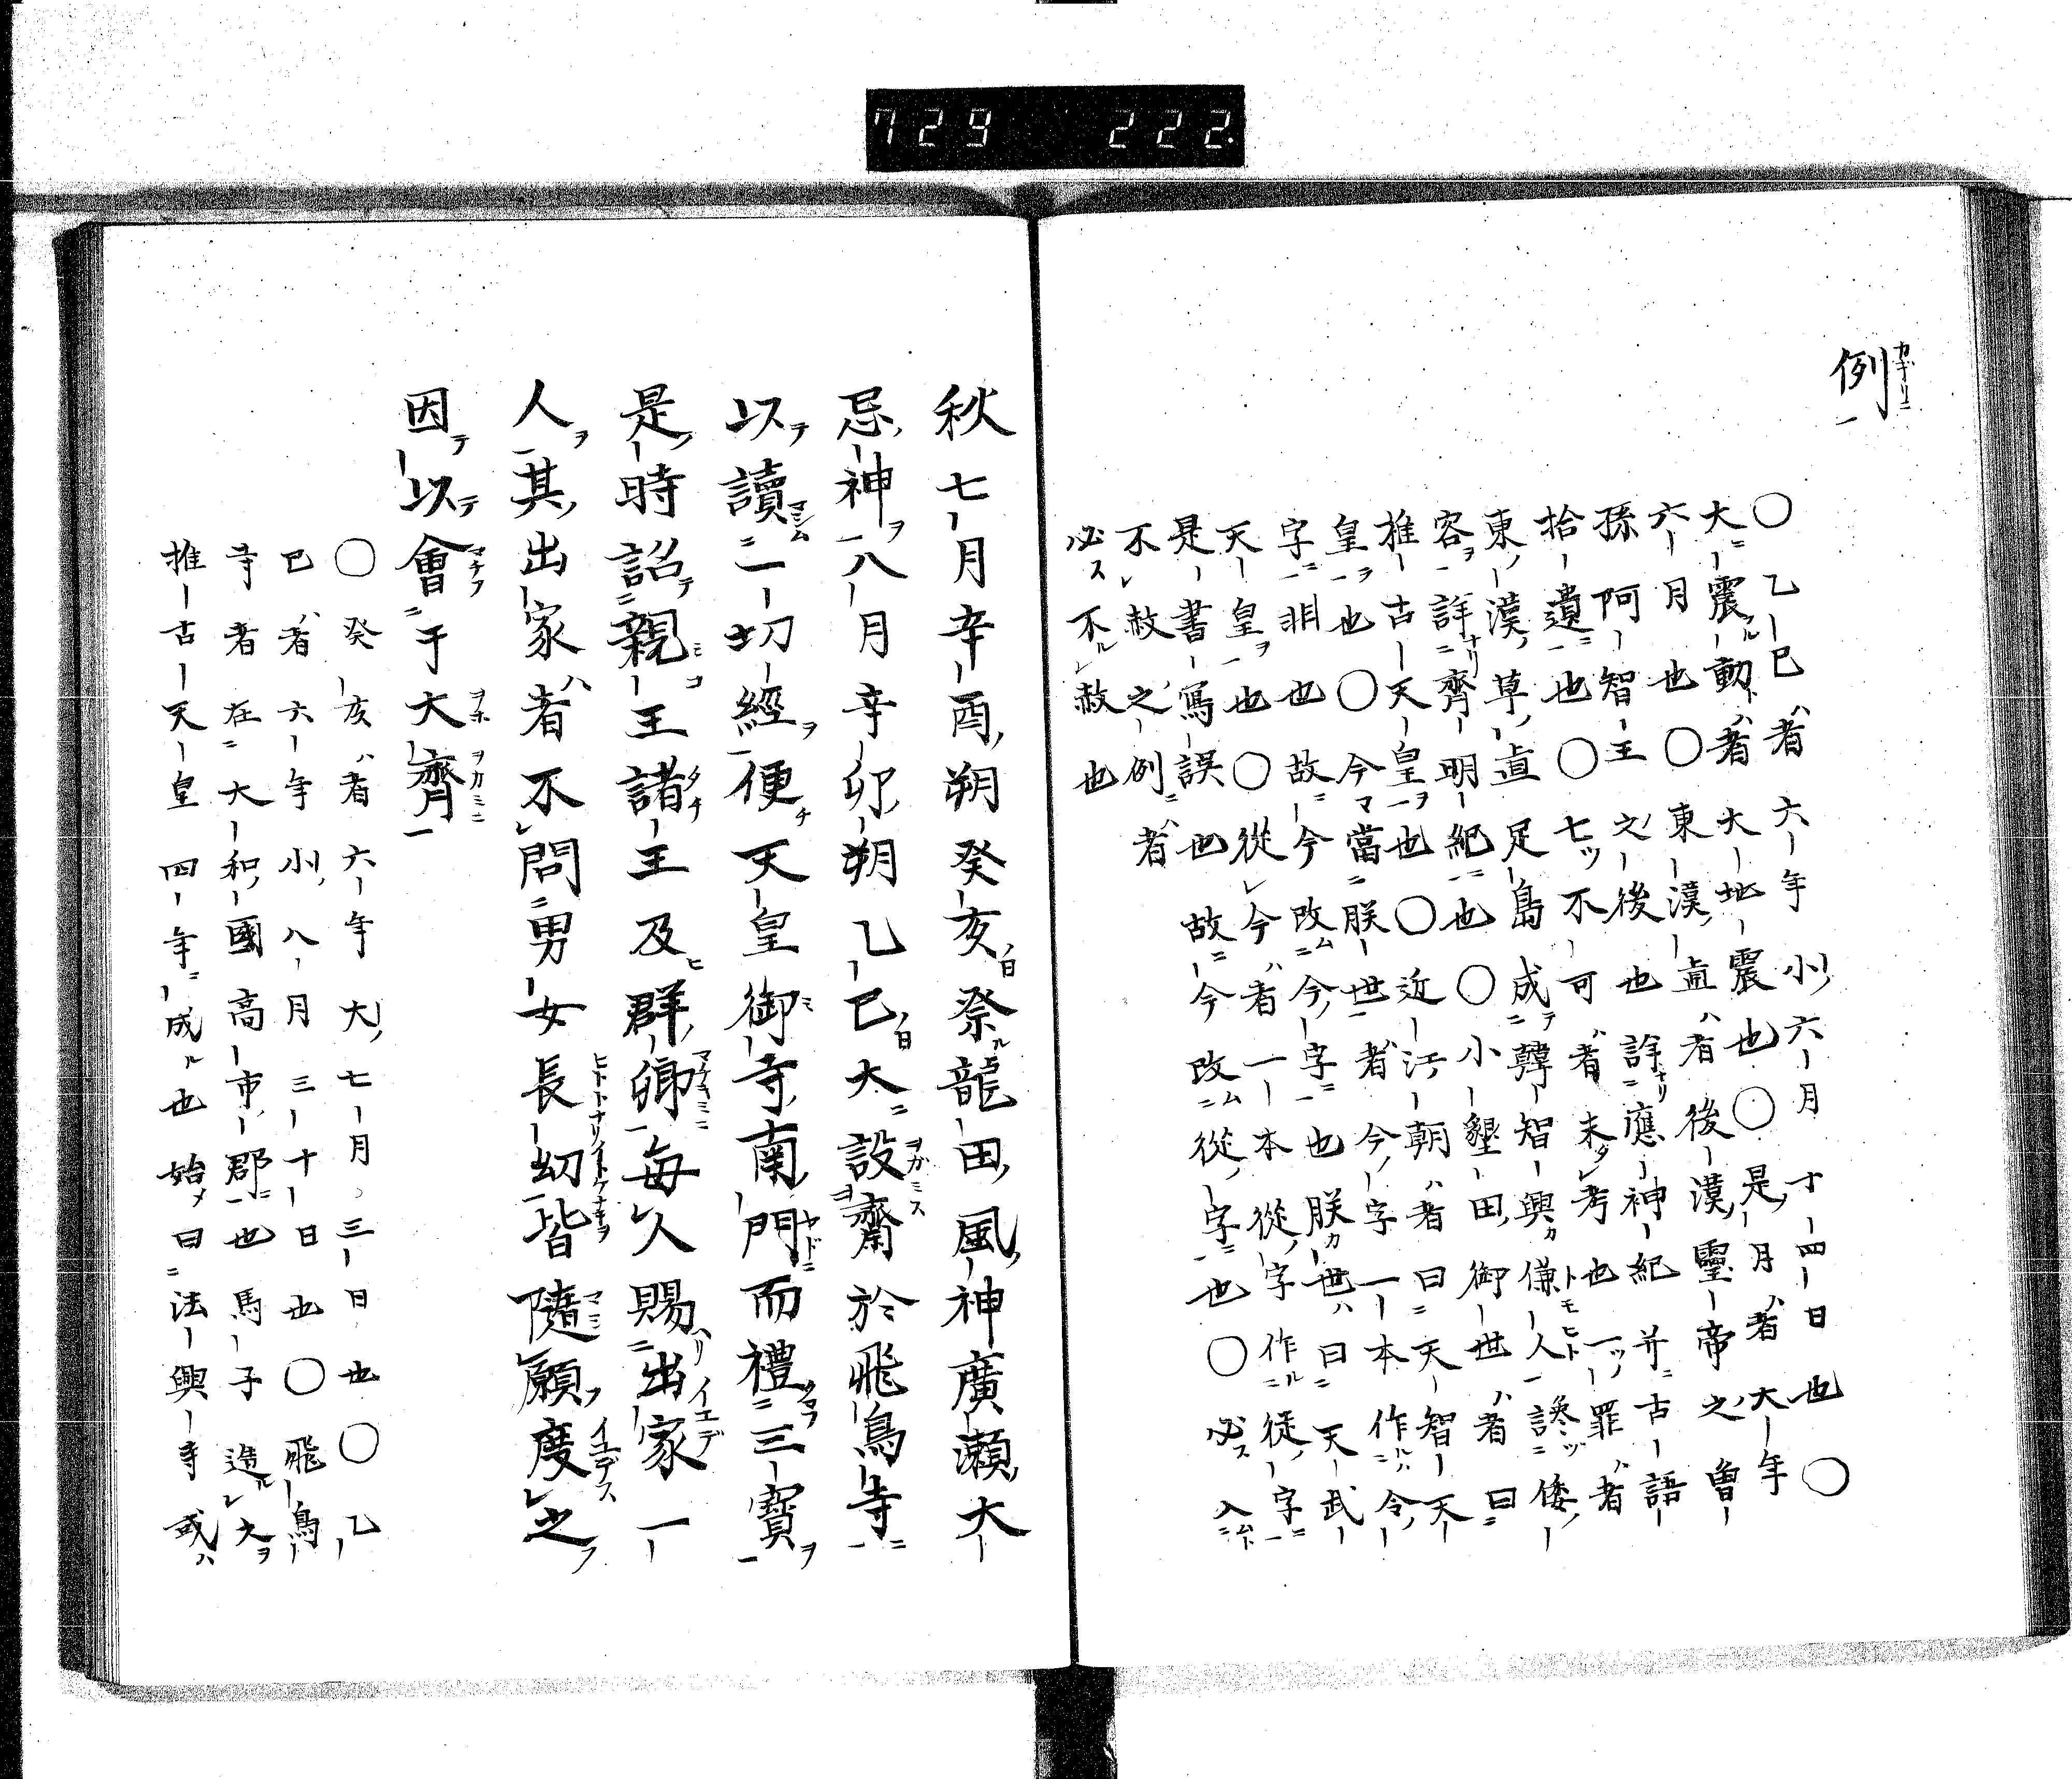 729 222
例
○乙巳者六年小六月十四日也○
大震動者大地震也○是月者大年
六月也○東漢直者後漢靈帝之曽
孫阿智王之後也詳應神紀并古語
拾遺也○七不可者未考也一罪者
東漢草直足島成韓智興傔人詅倭
容詳齊明紀也○小墾田御世者曰
推古天皇也○近江朝者曰天智天
皇也○今當朕世者今字一本作令
字非也故今改今字也朕世曰天武
天皇也○從今者一本從字作徒字
是書寫誤也故今改從字也○必入
不赦之例者
必不赦也
秋七月辛酉朔癸亥祭龍田風神廣瀬大
忌神八月辛卯朔乙巳大設齋於飛鳥寺
以讀一切經便天皇御寺南門而禮三寳
是時詔親王諸王及群卿毎人賜出家一
人其出家者不問男女長幼皆隨願度之
因以會于大齊
○癸亥者六年大七月三日也○乙
巳者六年小八月三十日也○飛鳥
寺者在大和國高市郡也馬子造大
推古天皇四年成也始曰法興寺或